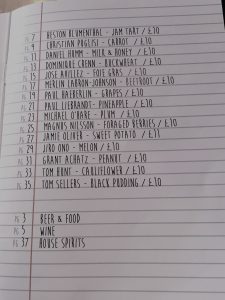 PG 7 HESTON BLUMENTHAL - JAM TART / £10
PG 9 CHRISTIAN PUGLISI - CARROT / £10
PG 11 DANIEL HUMM - MILK & HONEY / £10
PG 13 DOMINIQUE CRENN - BUCKWHEAT / £10
PG 15 JOSE AVILLEZ - FOIE GRAS / £10
PG 17 MERLIN LABRON-JOHNSON - BEETROOT / £10
PG 19 PAUL HAEBERLIN - GRAPES / £10
PG 21 PAUL LIEBRANDT - PINEAPPLE / £10
PG 23 MICHAEL O'HARE - PLUM / £10
PG 25 MAGNUS NILSSON - FORAGED BERRIES / £10
PG 27 JAMIE OLIVER - SWEET POTATO / £11
PG 29 JIRO ONO - MELON / £10
PG 31 GRANT ACHATZ - PEANUT / £10
PG 33 TOM HUNT - CAULIFLOWER / £10
PG 35 TOM SELLERS - BLACK PUDDING / £10
PG 3 BEER & FOOD
PG 5 WINE
PG 37 HOUSE SPIRITS